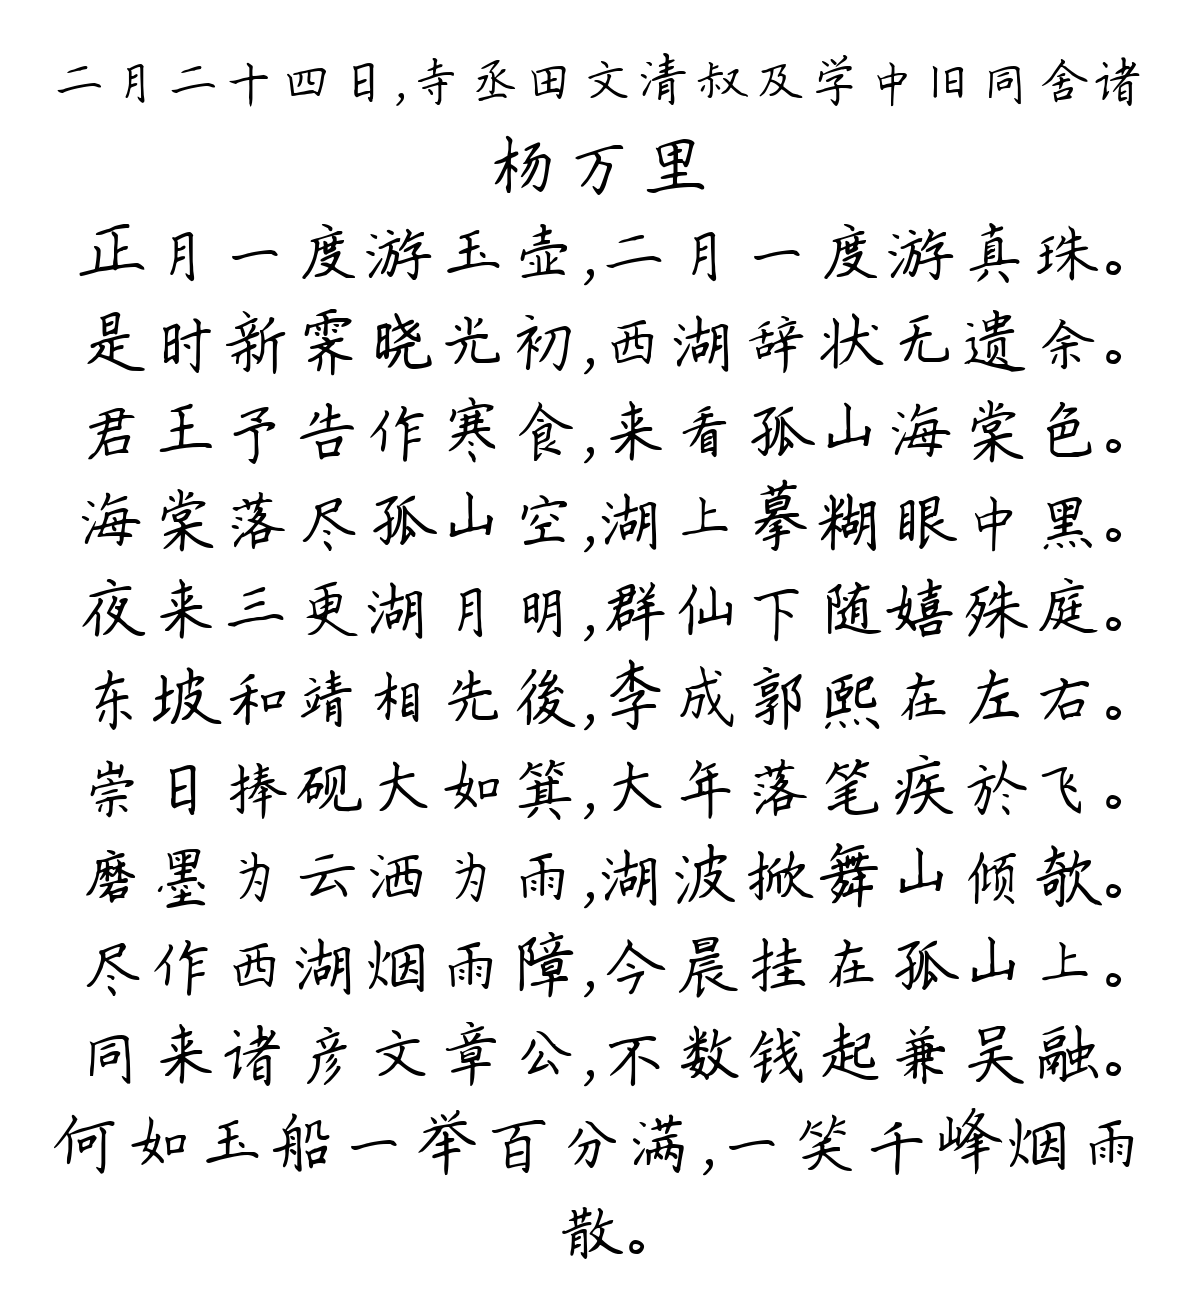 二月二十四日,寺丞田文清叔及学中旧同舍诸
杨万里
正月一度游玉壶,二月一度游真珠。
是时新霁晓光初,西湖辞状无遗余。
君王予告作寒食,来看孤山海棠色。
海棠落尽孤山空,湖上摹糊眼中黑。
夜来三更湖月明,群仙下随嬉殊庭。
东坡和靖相先後,李成郭熙在左右。
崇日捧砚大如箕,大年落笔疾於飞。
磨墨为云洒为雨,湖波掀舞山倾欹。
尽作西湖烟雨障,今晨挂在孤山上。
同来诸彦文章公,不数钱起兼吴融。
何如玉船一举百分满,一笑千峰烟雨
散。